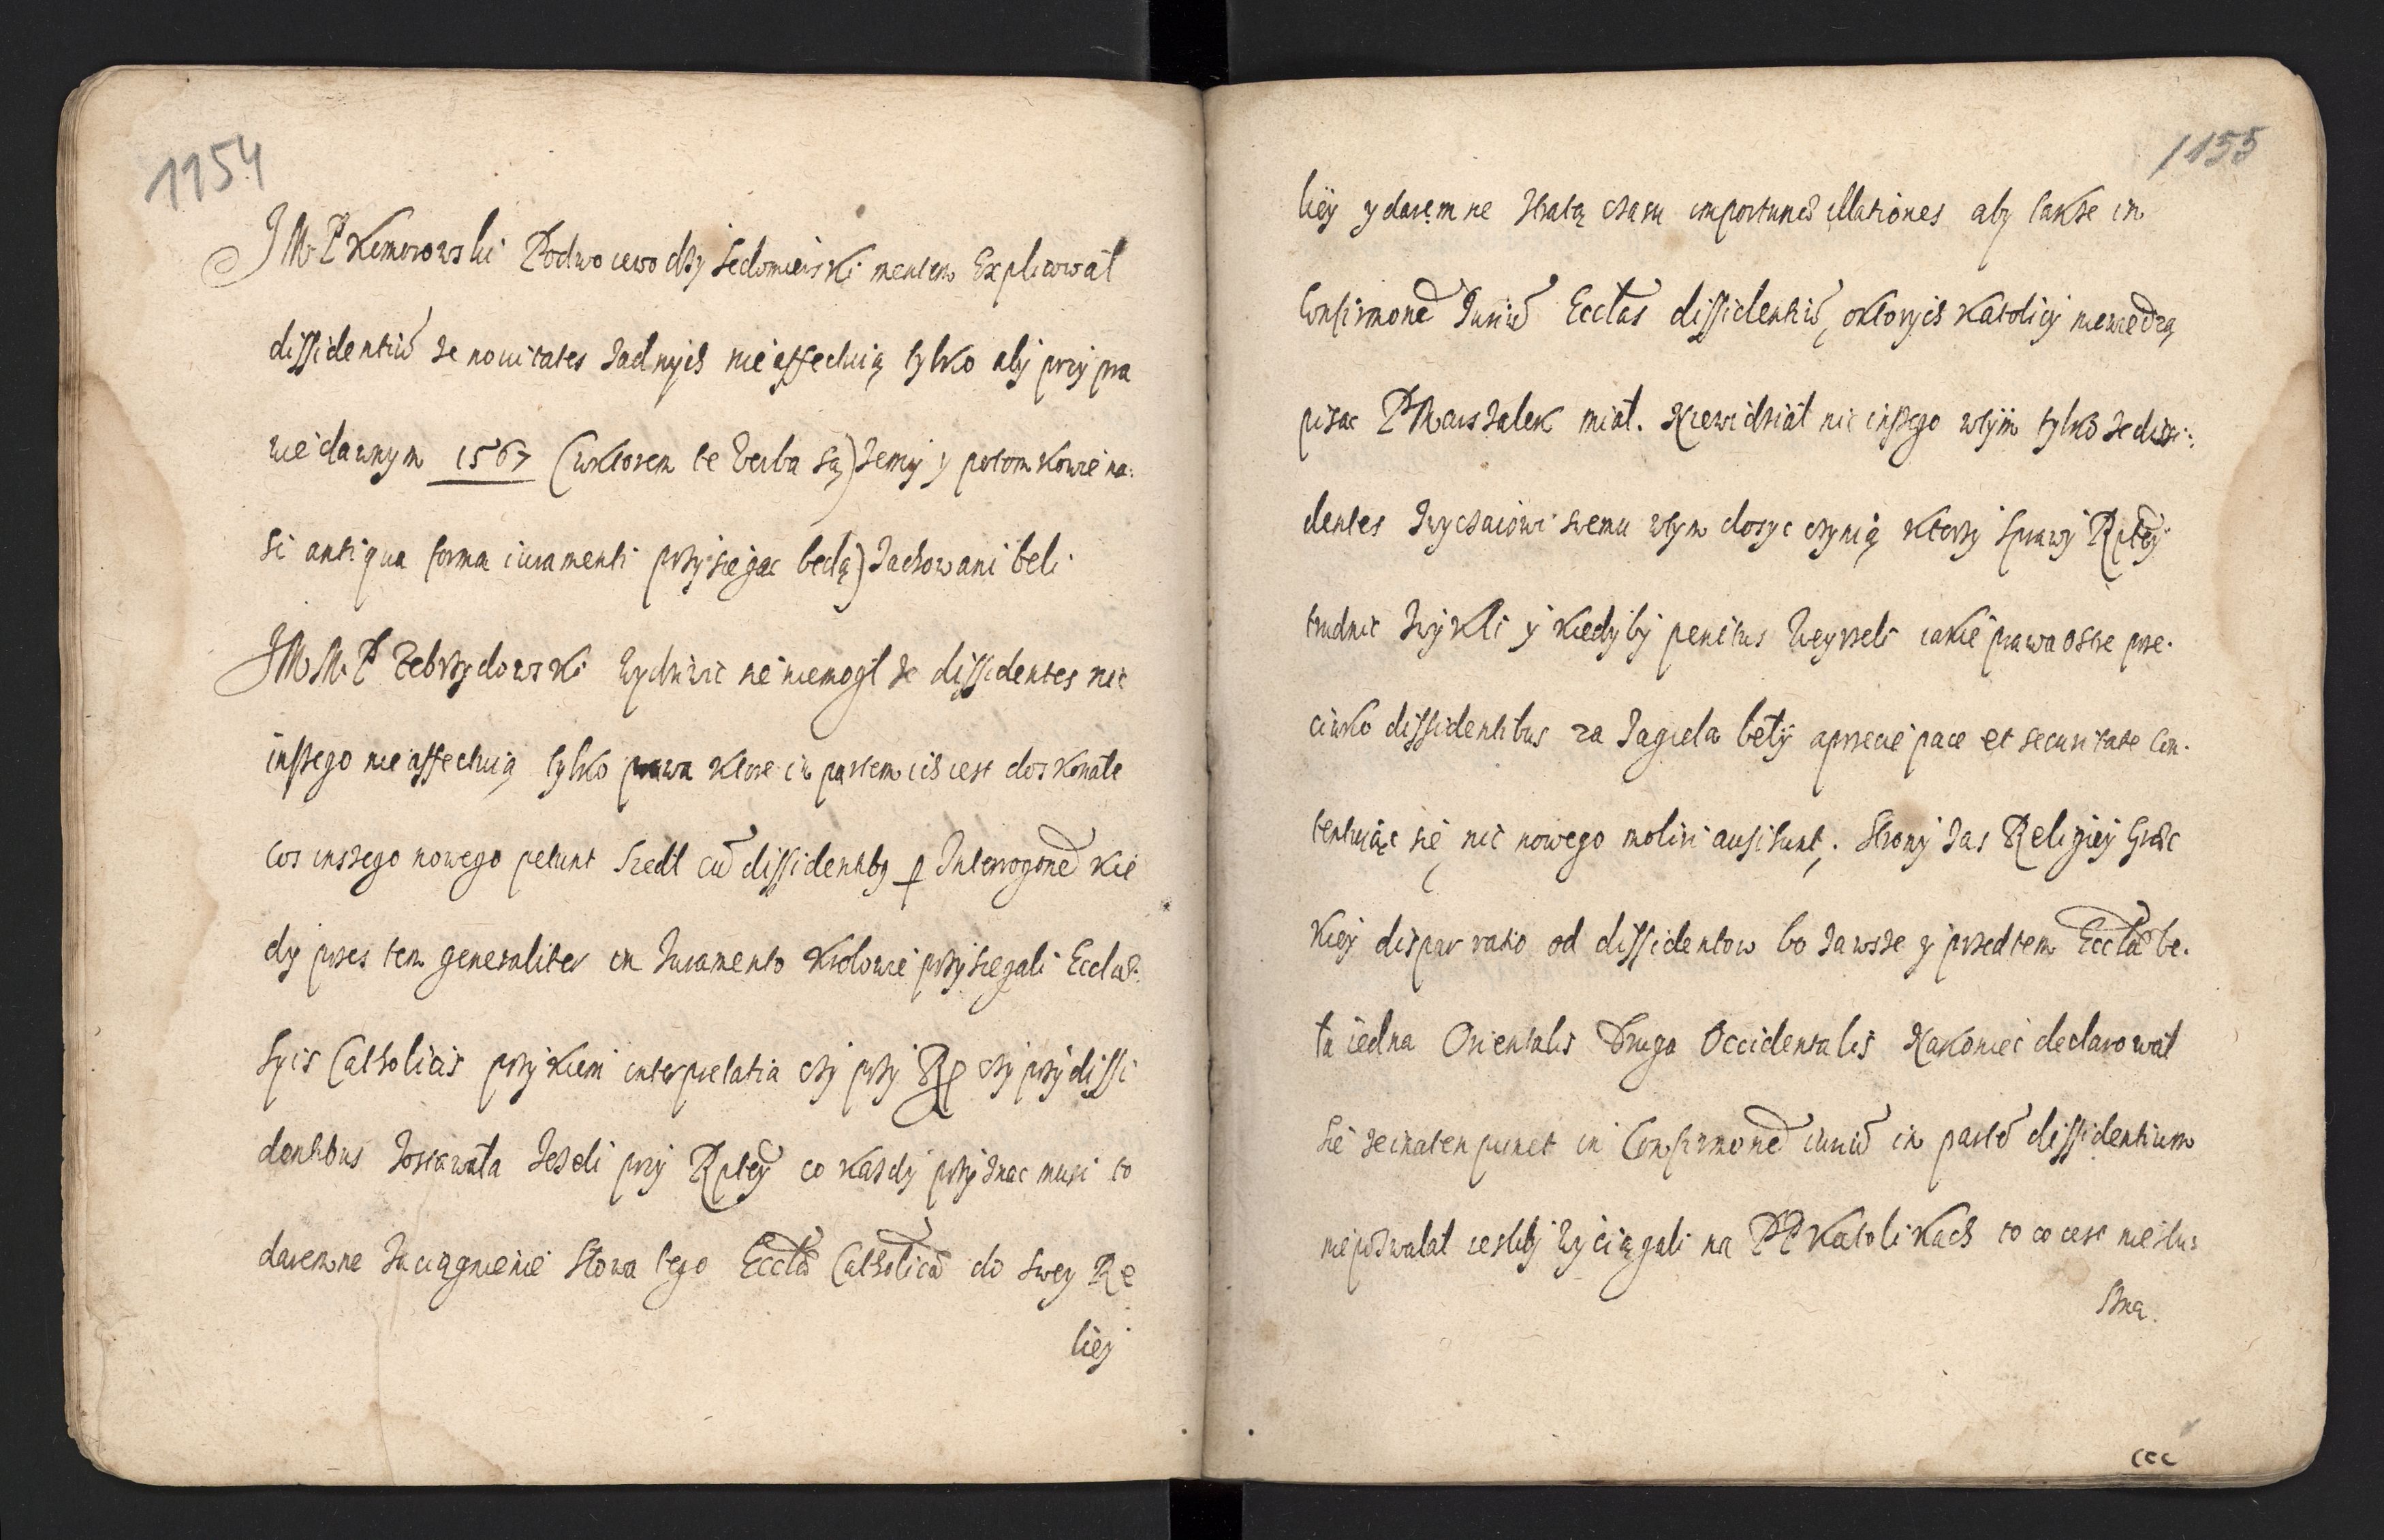 1154
JMP Komorowski Podwoiewodzy Sedomierski mentem Explicował
dissidentiũ ze nouitates zadnych nie affectuią tylko aby przy pra
wie dawnym 1567 (wktorem te verba są) zemy y potomkowie na:
si antiqua forma iuramenti przysiegac będą) zachowani beli
JM M. P Zebrzydowski wydziwic sie niemogł ze dissidentes nic
inszego nie affectuią tylko prawa ktore in partem iis iest doskonałe
cos inszego nowego petunt szedł cũ dissidentibg p Interrogonẽ kie
dy przes tem generaliter in Juramento krolowie przysiegali Eccla:
syis Catholicis przy kiem interpretatia czy przy Rp czy przy dissi
dentibus zostawała Jezeli przy Rptey co kazdy przyznac musi to
daremne zaciągnienie słowa tego Eccła Catholica do swey Re
liey
1155
liey y daremne stratą czasu importunas illationes aby takze in
Confirmonẽ Juriũ Ecctas dissidentiũ, oktorych katolicy niewiedzą
pisac P Marszałek miał. Niewidział nic inszego wtym tylko ze dissi:
dentes zwyczaiowi swemu wtym dosyc czynią ktorzy sprawy Rptey
trudnic zwykli y kiedyby penitus weyrzeli iakie prawa ostre prze.
ciwko dissidentibus za Jagieła beły aprzecie pace et securitate con.
tentuiąc się nic nowego moliri ausi sunt. Strony zas Religiey Grec
kiey dispar ratio od dissidentow bo zawsze y przedtem Eccła be.
ła iedna Orientalis Druga Occidentalis Nakoniec declarował
sie ze inaten punct in Confirmonẽ iuriũ in partẽ dissidentium
niepozwalał iesliby wyciągali na PP Katolikach to co iest nieslu:
szna.
ccc